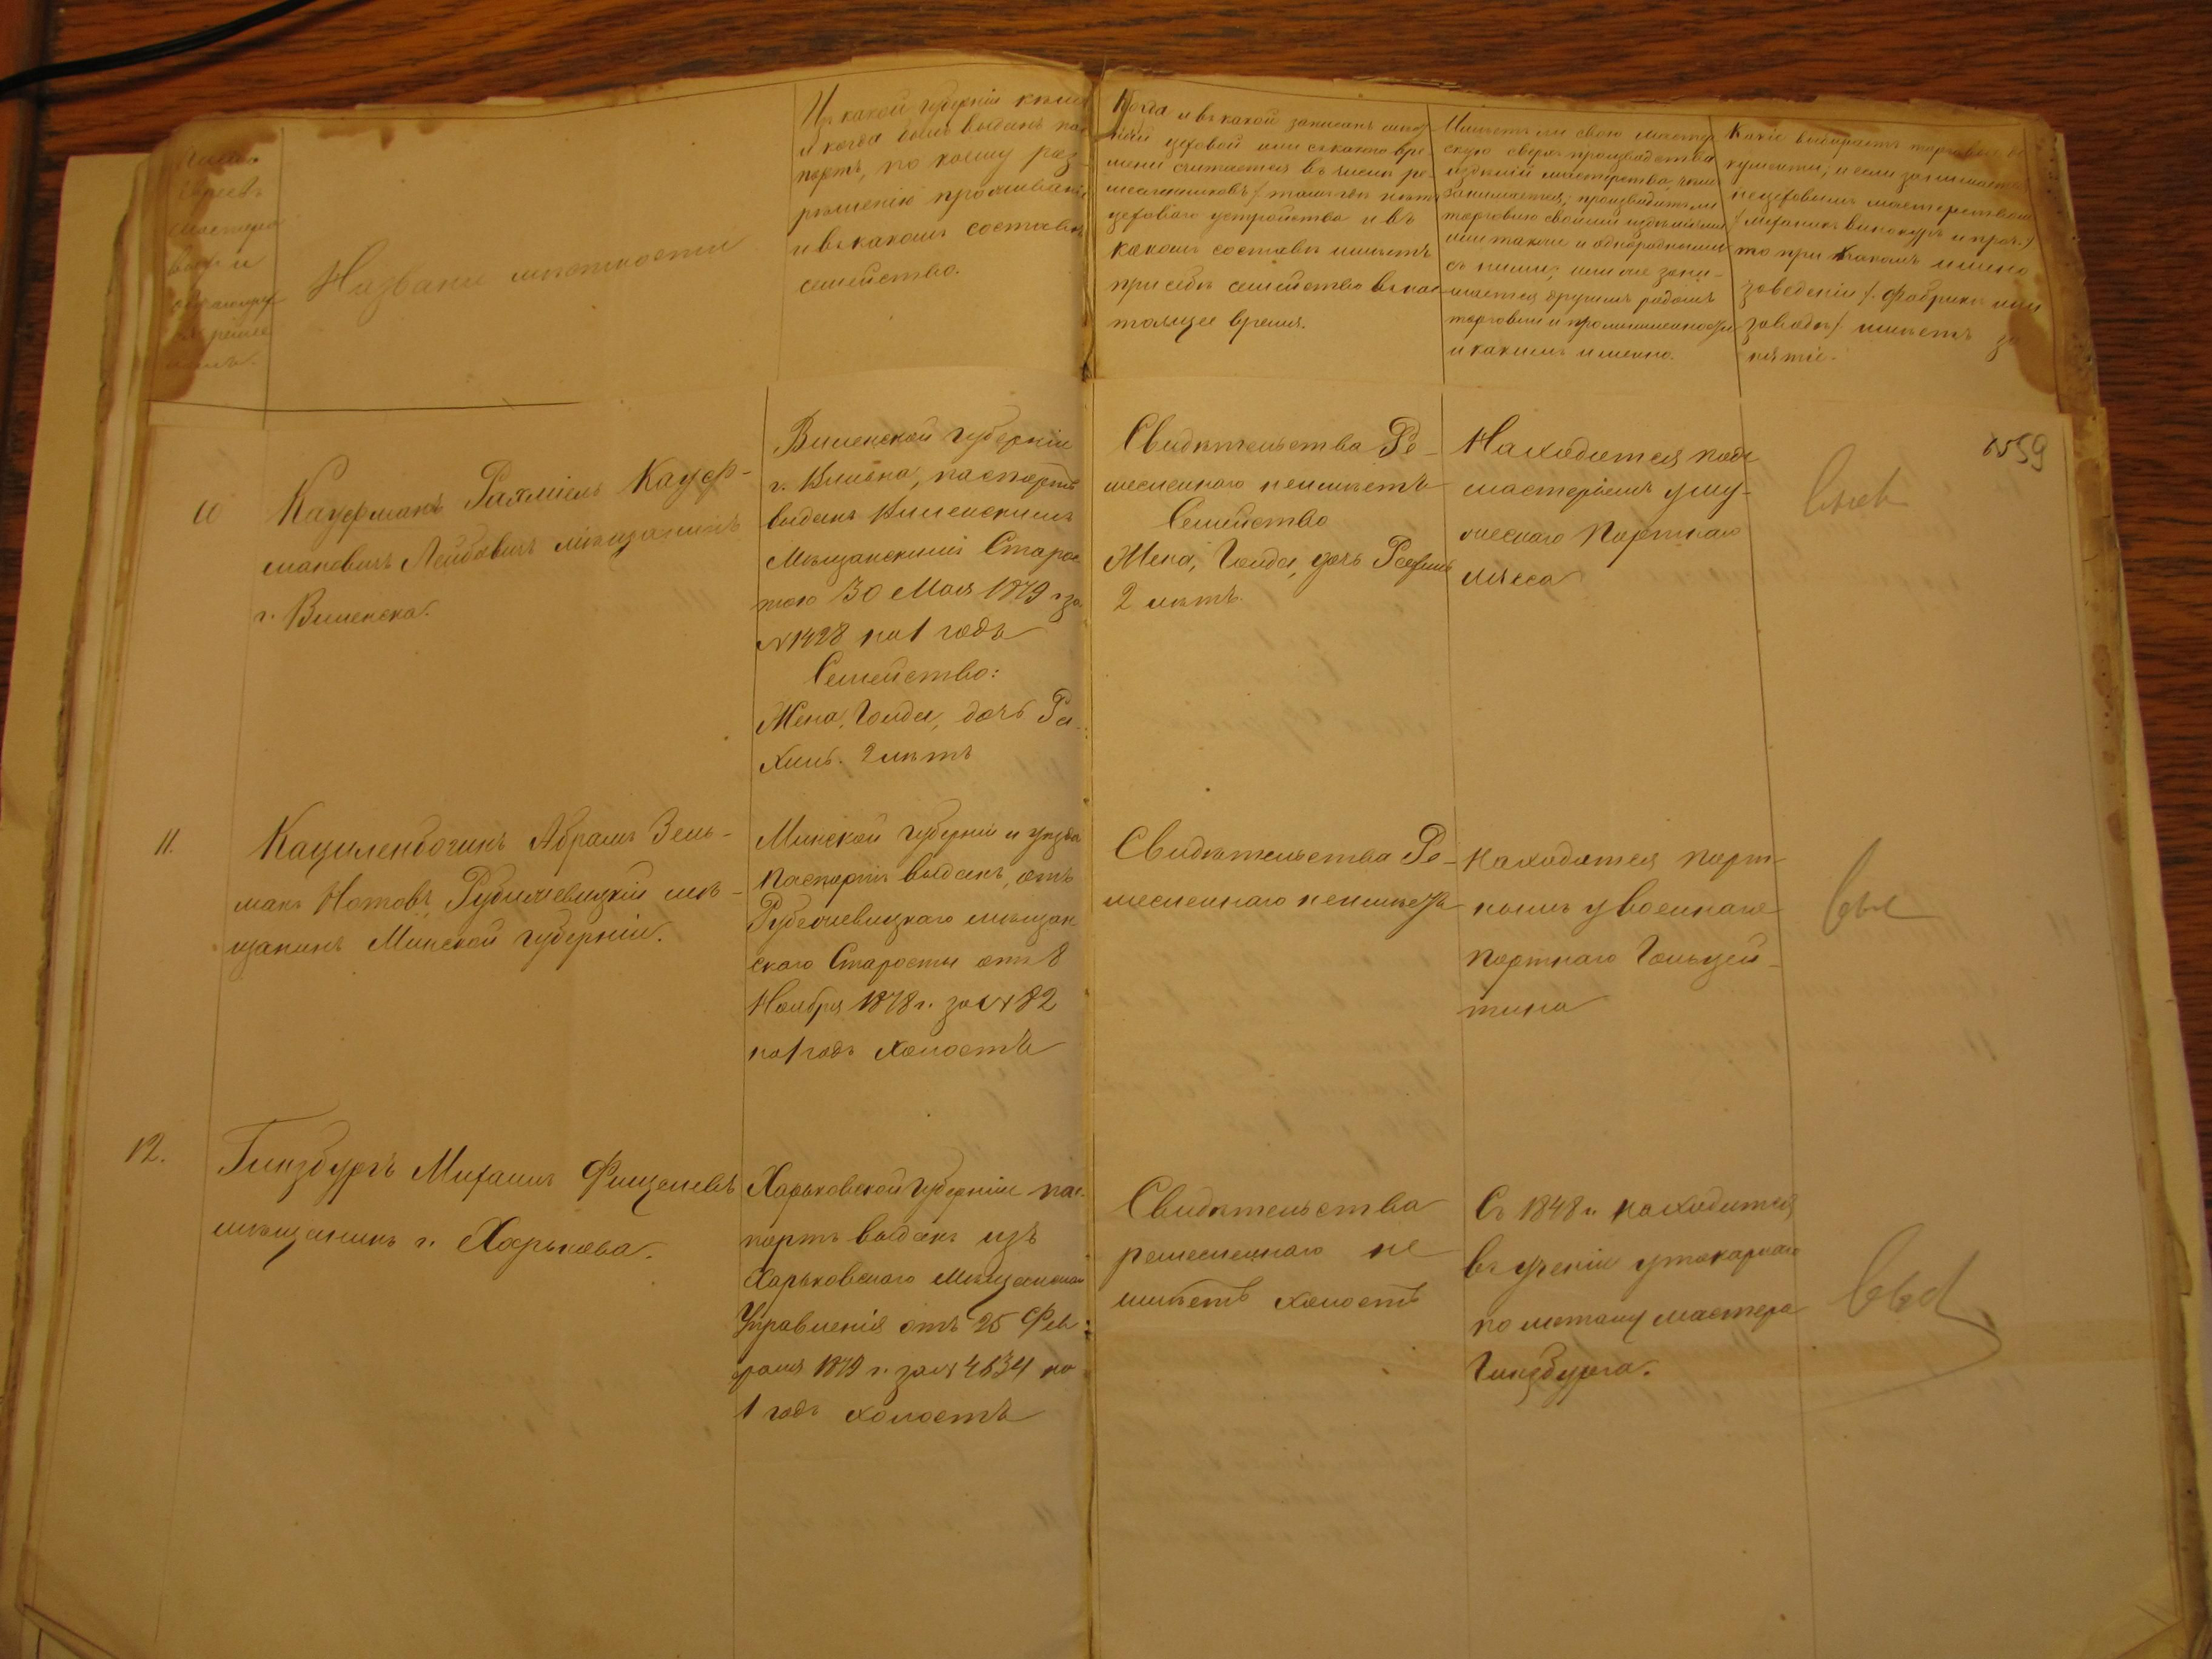 Число
евреевъ
мастеро
выхъ и
Названіе мѣстности
Изъ какой губерніи кѣмъ
и когда былъ выданъ пас
портъ, по коему раз-
рѣшенію проживаніе
и въ какомъ составѣ
семейство.
Когда и въ какой записанъ
цеховой или съ какого вре-
мени считается въ числѣ ре-
месленниковъ / тамъ гдѣ нѣтъ
цеховаго устройства и въ
какомъ составѣ имѣетъ
при себѣ семейство въ нас-
тоящее время.
Имѣетъ ли свою мастер
скую сверхъ производства
издѣлій мастерства, чѣмъ
занимается; производитъ ли
торговлю своими издѣліями
или такими и однородными
съ ними; или же зани-
мается другимъ родомъ
торговли и промышленности
и какимъ именно.
Какіе выбираетъ торговые до
кументы; и если занимается
нецеховымъ мастерствомъ
/ механикъ винокуръ и проч. /
то при какомъ именно
заведеніи /. фабрикѣ или
заводѣ / имѣетъ за
нятіе.
59
10
Кауфманъ Рахміель Кауф-
мановичъ Лейбовичъ мѣщанинъ
г. Виленска.
Виленской губерніи
г. Вильна, паспортъ
выданъ Виленскимъ
Мѣщанскимъ Старос
тою 30 Мая 1879 г за
№ 1428 на 1 годъ
Семейство:
Жена, Гольда, дочь Ра-
хиль. 2 лѣтъ
Свидѣтельства Ре-
месленнаго неимѣетъ
Семейство
Жена, Гольда, дочь Рахиль
2 лѣтъ.
Находится под
мастеріемъ у му-
ческаго Портнаго
11.
Каценленбогинъ Абрамъ Зель-
манъ Нотовъ, Рубежевицкій мѣ-
щанинъ Минской губерніи.
Минской губерніи и уѣзда
Паспортъ выданъ, отъ
Рубежевицкаго мѣщан
скаго Старосты отъ 8
Ноября 1878 г. за № 82
на 1 годъ холостъ
Свидѣтельства Ре-
месленнаго неимѣетъ
Находится порт-
нымъ у военнаго
Портнаго Гольдей-
12.
Гинзбургъ Михаилъ Фишелевъ
мѣщанинъ г. Харькова.
Харьковской губерніи пас-
портъ выданъ изъ
Харьковскаго Мѣщанскаго
Управленія отъ 25 Фев
раля 1879 г. за № 4634 на
1 годъ холостъ
Свидѣтельства
ремесленнаго не
имѣетъ холостъ
Съ 1848 г. находится
въ ученіи у токарнаго
по металу мастера
Гинзбурга.